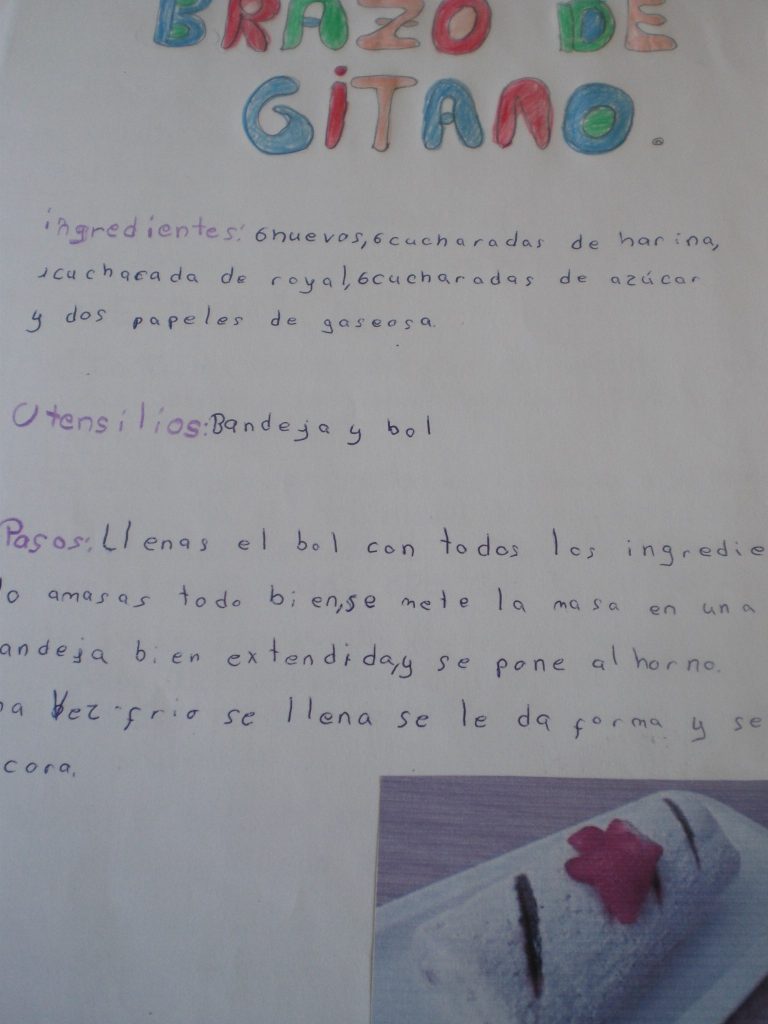 BRAZO DE
GITANO.
ingredientes: 6 huevos, 6 cucharadas de harina,
1 cucharada de royal, 6 cucharadas de azúcar
y dos papeles de gaseosa.
Utensilios: Bandeja y bol
Pasos: Llenas el bol con todos los ingredie
lo amasas todo bien, se mete la masa en una
andeja bien extendida, y se pone al horno.
na vez frio se llena se le da forma y se
cora.